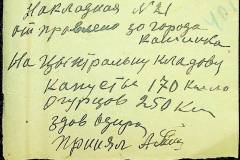 Накладная № 21
отправлено за города
Кашника
На цынтральну кладову
капусты 170 кило
Огурцов 250 кил
здов
принял